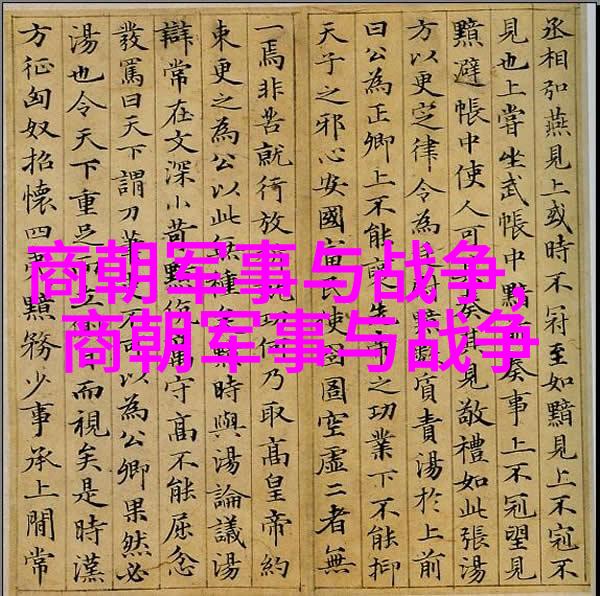 商朝军事与战争,
商朝军事与战争
丞相弘燕見上或時不冠至如黯見上不冠不
見也上嘗坐武帳中黯奏事上不冠望見
黯避帳中使人可奏其見敬禮如此張湯
方以更定律令為黯數質責湯於上前
曰公為正卿上不能之功業下不能抑
天子之邪心安國富民使囹圄空虛二者無
一焉非苦就行放功何乃取高皇帝約
束更之為公以此無種矣黯時與湯論議湯
辯常在文深小苛黯守高不能屈忿
發罵曰天下謂刀不可以為公卿果然必
湯也令天下重足而立而視矣是時漢
方征匈奴招懷四黯務少事承上閒常